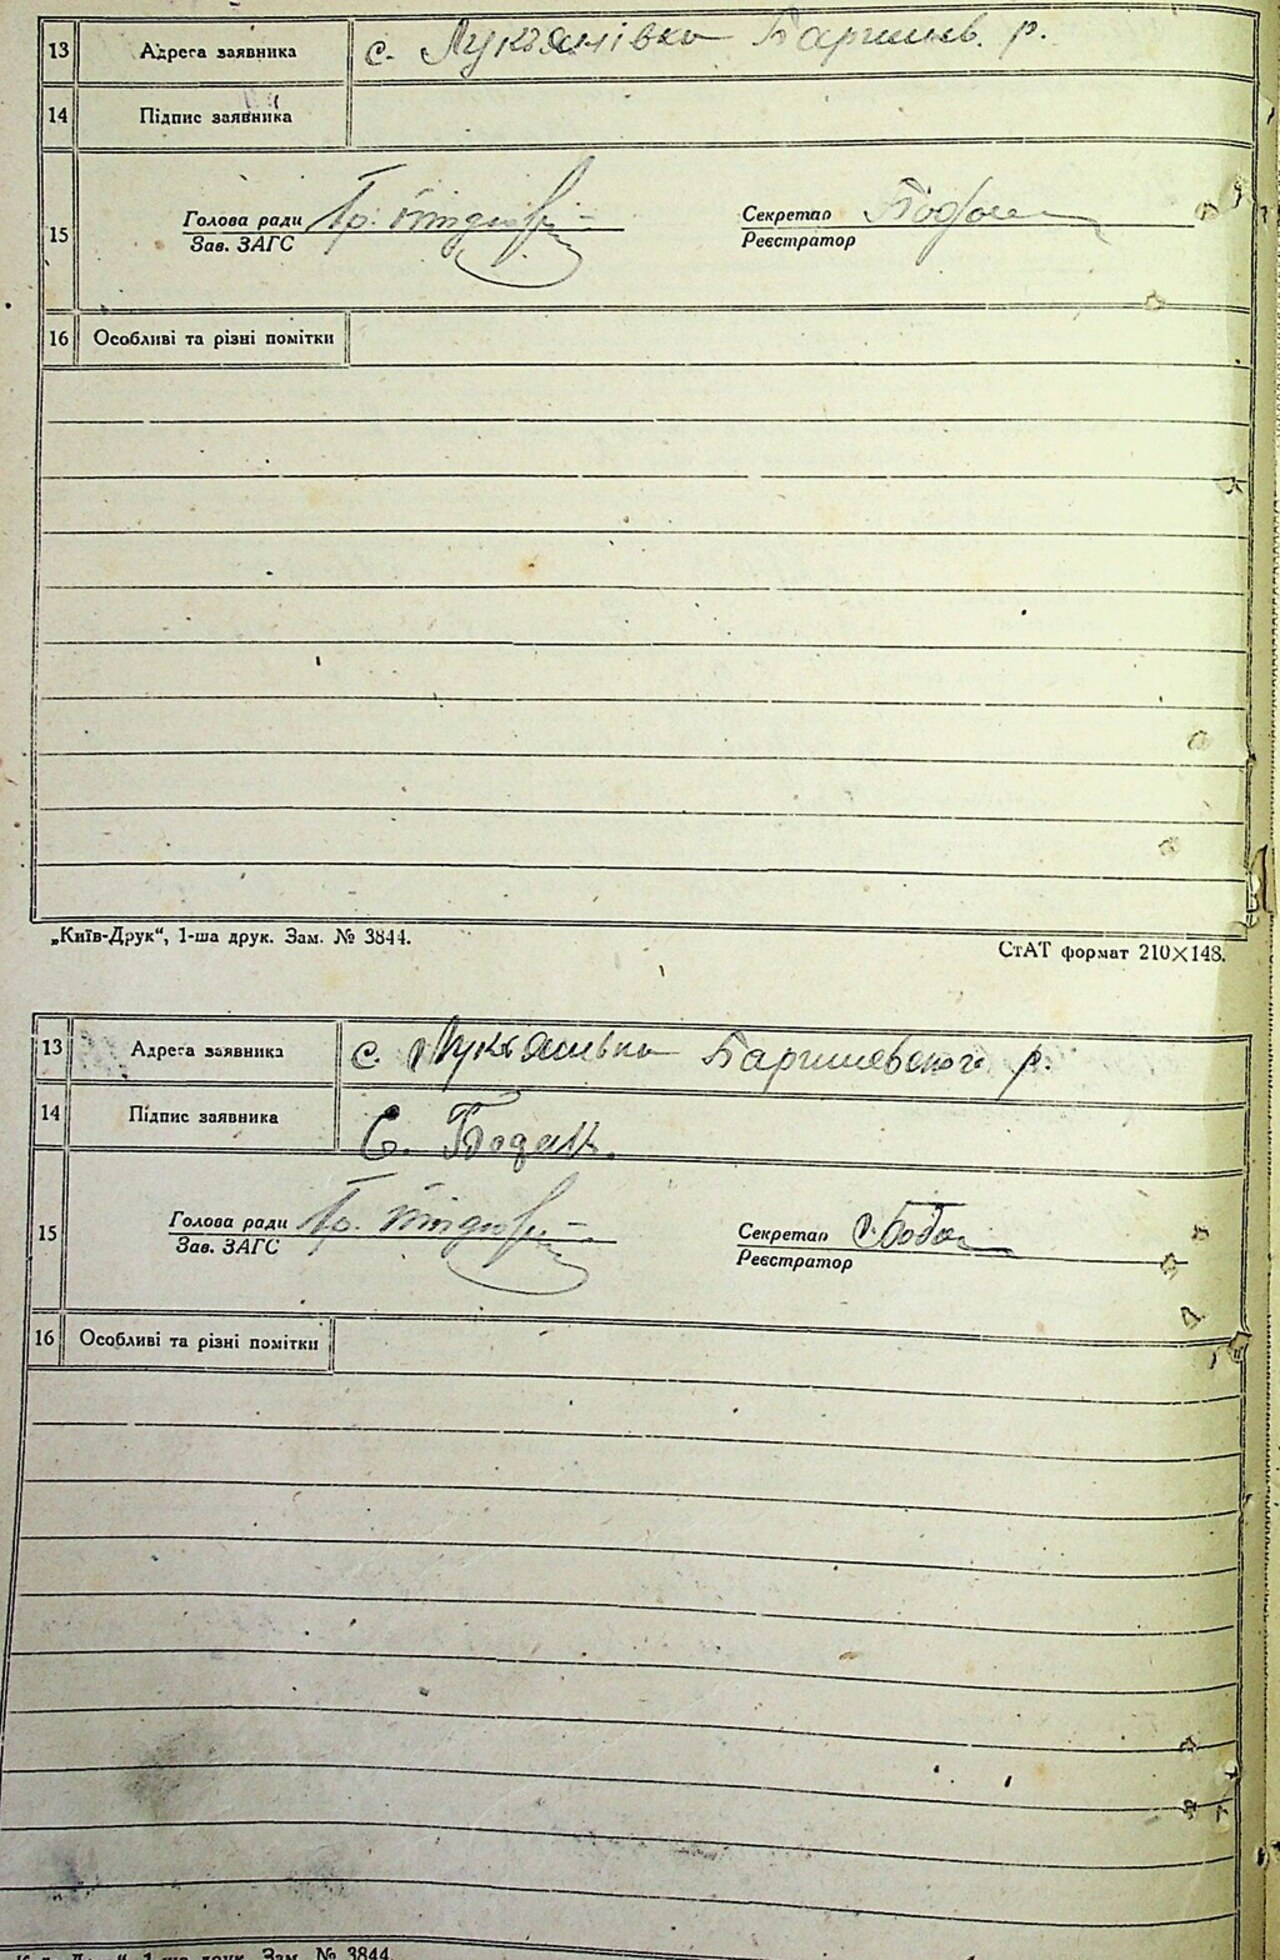 13 Адреса заявника с. Лукъянівка Баришев. р.
14 Підпис заявника
Голова ради Секретар
15
Зав. ЗАГС Реєстратор
16 Особливі та різні помітки
„Київ-Друк“, 1-ша друк. Зам. № 3844.
СтАТ формат 210×148.
13 Адреса заявника с. Лукъянивка Баришевского р.
14 Підпис заявника С. Бодак.
Голова ради Секретар
15
Зав. ЗАГС Реєстратор
16 Особливі та різні помітки
1-ша друк. Зам. № 3844.